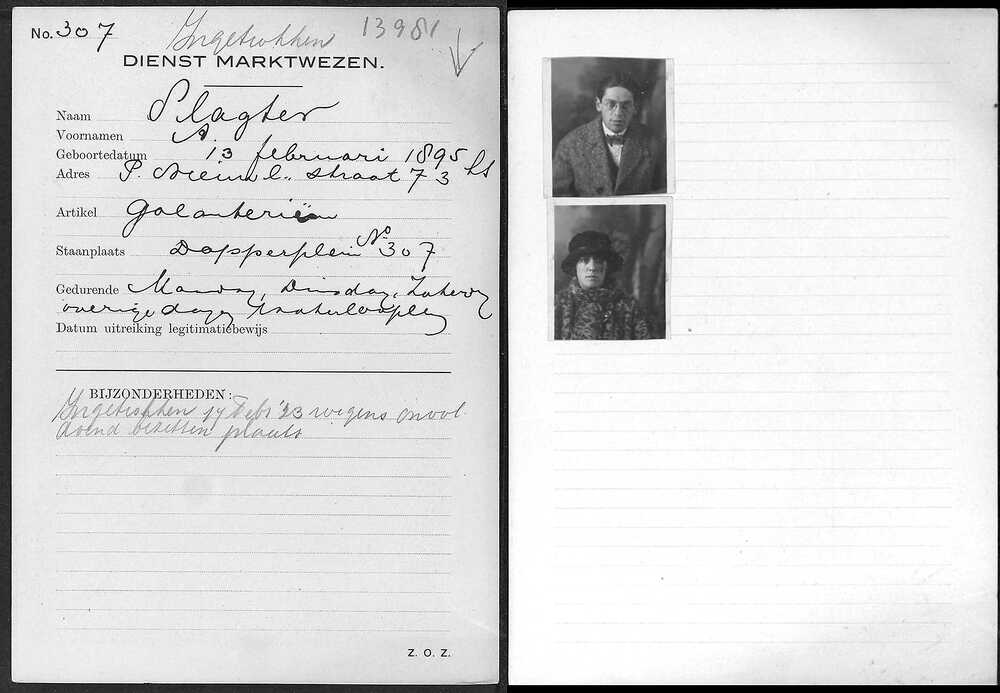 No. 307 Ingetrokken 13981
DIENST MARKTWEZEN.
Naam Slagter
Voornamen A.
Geboortedatum 13 februari 1895
Adres P. straat 73 hs
Artikel galanteriën
Staanplaats Dapperplein No 307
Gedurende Maandag, Dinsdag, Zaterdag
overige dagen Waterlooplein
Datum uitreiking legitimatiebewijs
BIJZONDERHEDEN:
Ingetrokken Febr '23 wegens onvol-
doend bezetten plaats
Z. O. Z.